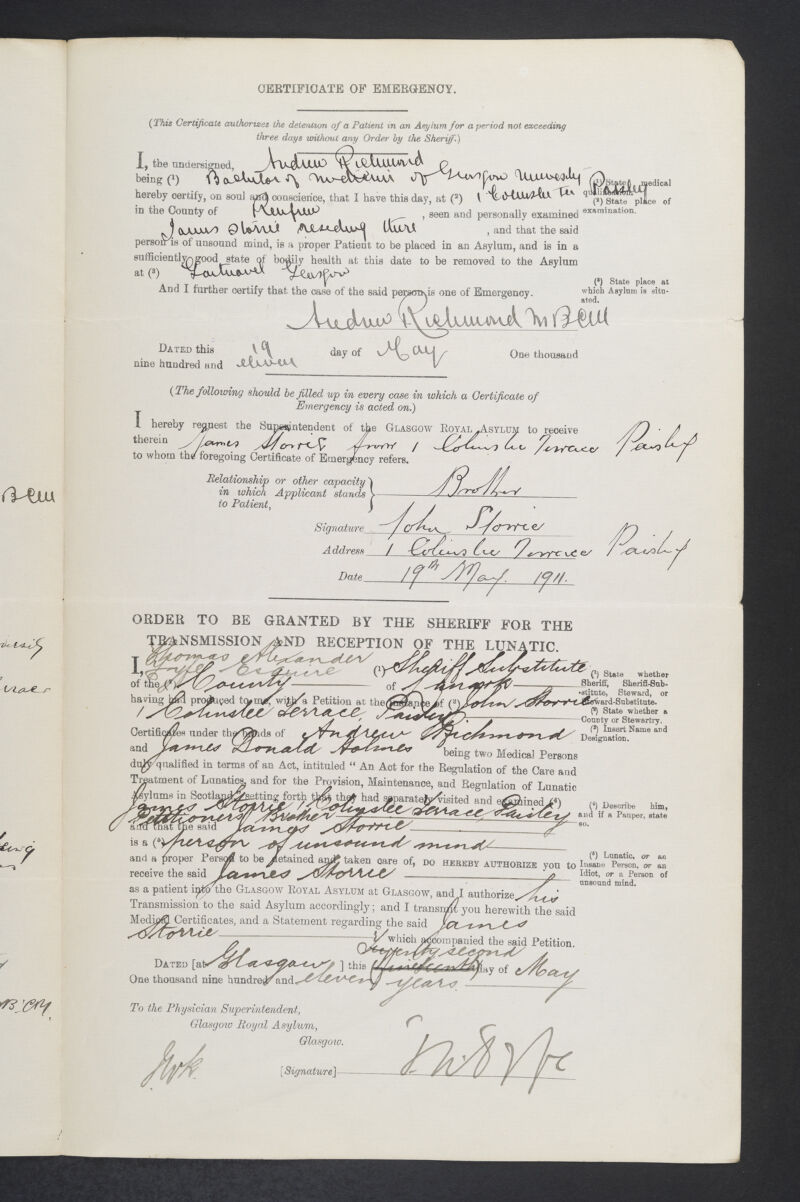 CERTIFICATE OF EMERGENCY.
(This Certificate authorizes the detention of a Patient in an Asylum for a period not exceeding
three days without any Order by the Sheriff.)
I, the undersigned, Andrew Richmond
being (¹) Bachelor of Medicine of Glasgow University
(¹) State medical qualification.
hereby certify, on soul and conscience, that I have this day, at (²) 1 Colinslee Ter Paisley
(²) State place of examination.
in the County of Renfrew, seen and personally examined
James Storrie residing there, and that the said
person is of unsound mind, is a proper Patient to be placed in an Asylum, and is in a
sufficiently good state of bodily health at this date to be removed to the Asylum
at (³) Gartnavel Glasgow
(³) State place at
which Asylum is situ-
ated.
And I further certify that the case of the said person is one of Emergency.
Andrew Richmond M B CM
DATED this 19 day of May One thousand
nine hundred and eleven
(The following should be filled up in every case in which a Certificate of
Emergency is acted on.)
I hereby request the Superintendent of the GLASGOW ROYAL ASYLUM to receive
therein James Storrie from 1 Colinslee Terrace Paisley
to whom the foregoing Certificate of Emergency refers.
Relationship or other capacity
in which Applicant stands
to Patient, Brother
Signature John Storrie
Address 1 Colinslee Terrace Paisley
Date 19th May. 1911.
ORDER TO BE GRANTED BY THE SHERIFF FOR THE
TRANSMISSION AND RECEPTION OF THE LUNATIC.
I, Thomas Alexander
Fyfe Esquire (¹) Sheriff Substitute
of the (²) County of Lanark
(¹) State whether
Sheriff, Sheriff-Sub-
stitute, Steward, or
Steward-Substitute.
having had produced to me, with a Petition at the instance of (³) John Storrie
1 Colinslee Terrace, Paisley
(²) State whether a
County or Stewartry.
(³) Insert Name and
Designation.
Certificates under the hands of Andrew Richmond
and James Donald Holmes being two Medical Persons
duly qualified in terms of an Act, intituled "An Act for the Regulation of the Care and
Treatment of Lunatics, and for the Provision, Maintenance, and Regulation of Lunatic
Asylums in Scotland," setting forth that they had separately visited and examined (⁴)
James Storrie, 1 Colinslee Terrace Paisley
Petitioners Brother
(⁴) Describe him,
and if a Pauper, state
so.
and that the said James Storrie
is a (⁵) person of unsound mind
and a proper Person to be detained and taken care of, DO HEREBY AUTHORIZE you to
(⁵) Lunatic, or an
Insane Person, or an
Idiot, or a Person of
unsound mind.
receive the said James Storrie
as a patient into the GLASGOW ROYAL ASYLUM AT GLASGOW, and I authorize his
Transmission to the said Asylum accordingly; and I transmit you herewith the said
Medical Certificates, and a Statement regarding the said James
Storrie which accompanied the said Petition.
twenty second
DATED [at Glasgow ] this nineteenth day of May
One thousand nine hundred and eleven years.
To the Physician Superintendent,
Glasgow Royal Asylum,
Glasgow.
[Signature]
B CM
B. CM.